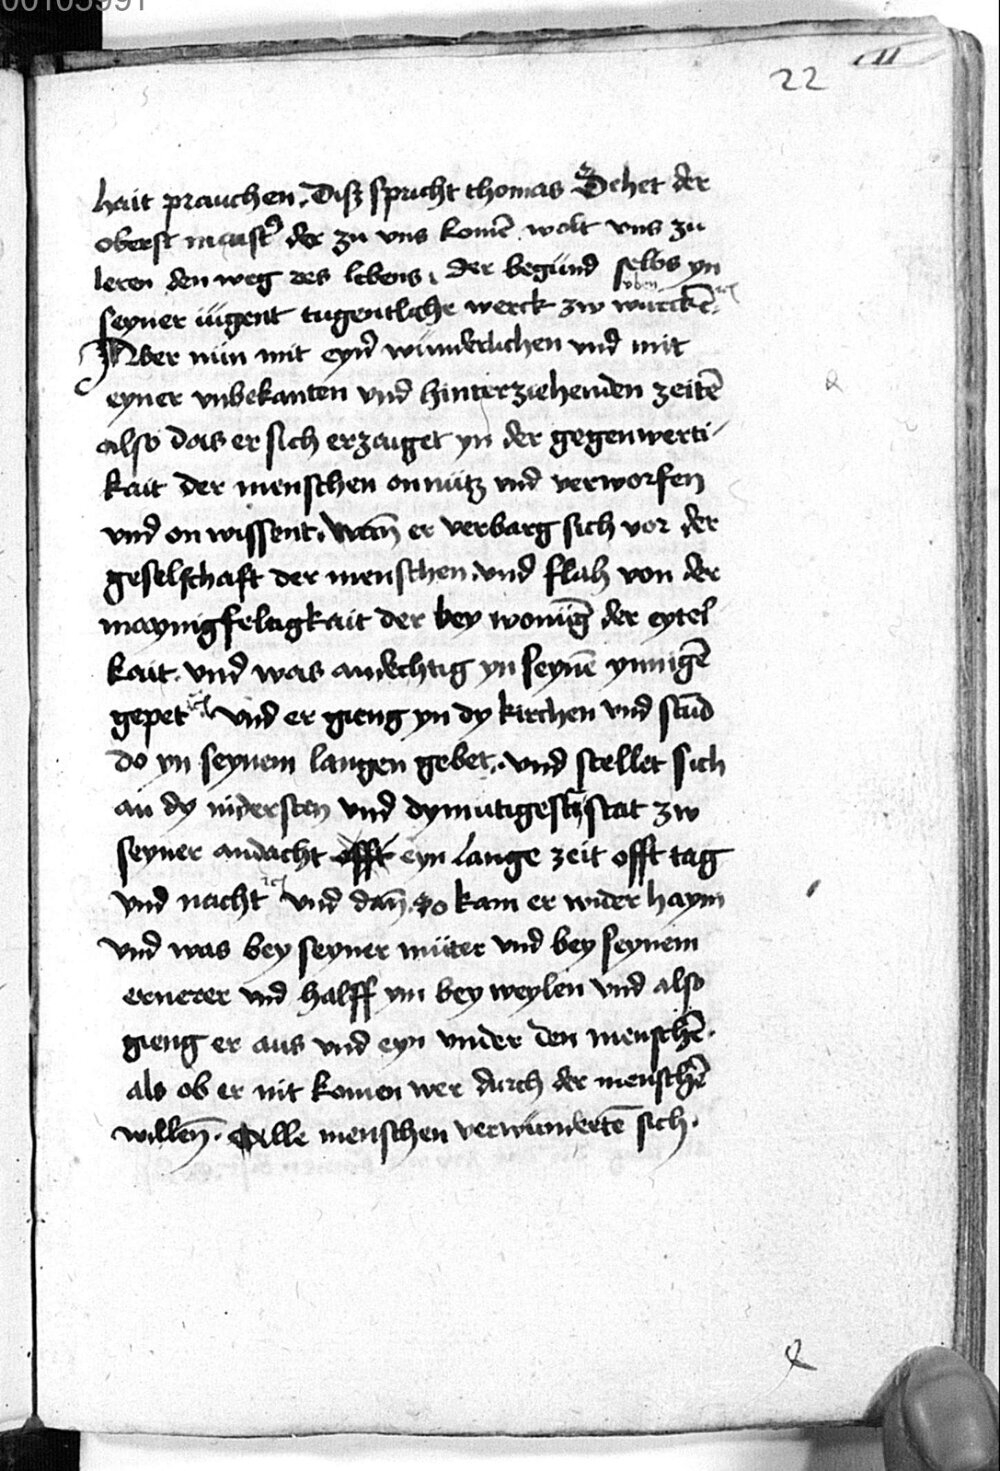 00103991
22
hait prauchen. Diß spricht thomas Sehet der
oberst maistʾ der zu vns komē wolt vns zu
leren den weg des lebens, der begünd selbs yn
vben
seyner iügent tugentliche werck zw würckē
Aber nün mit eynʾ wünderlichen vnd mit
eyner vnbekanten vnd hinterziehenden zeitē
also das er sich erzaiget yn der gegenwerti
kait der menschen onnütz vnd verworfen
vnd onwissent. wan̄ er verbarg sich vor der
geselschaft der menschen. vnd flah von der
maynigfeltigkait der bey wonūg der eytel
kait. vnd was andechtig yn seynē ynnigē
gepet vnd er gieng yn dy kirchen vnd stūd
do yn seynem langen gebet. vnd stellet sich
an dy nidersten vnd dymütigesty stat zw
seyner andacht offt eyn lange zeit offt tag
vnd nacht vnd dan̄ so kam er wider haym
vnd was bey seyner müter vnd bey seynem
ernerer vnd halff ym bey weylen vnd also
gieng er aus vnd eyn vnder den menschē.
als ob er nit komen wer durch der menschē
willen̄. Alle menschen verwündertē sich.